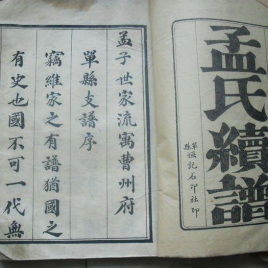 孟氏續譜
單縣
記石印社印
孟子世家流寓曹州府
單縣支譜序
竊維家之有譜猶國之
有史也國不可一代無